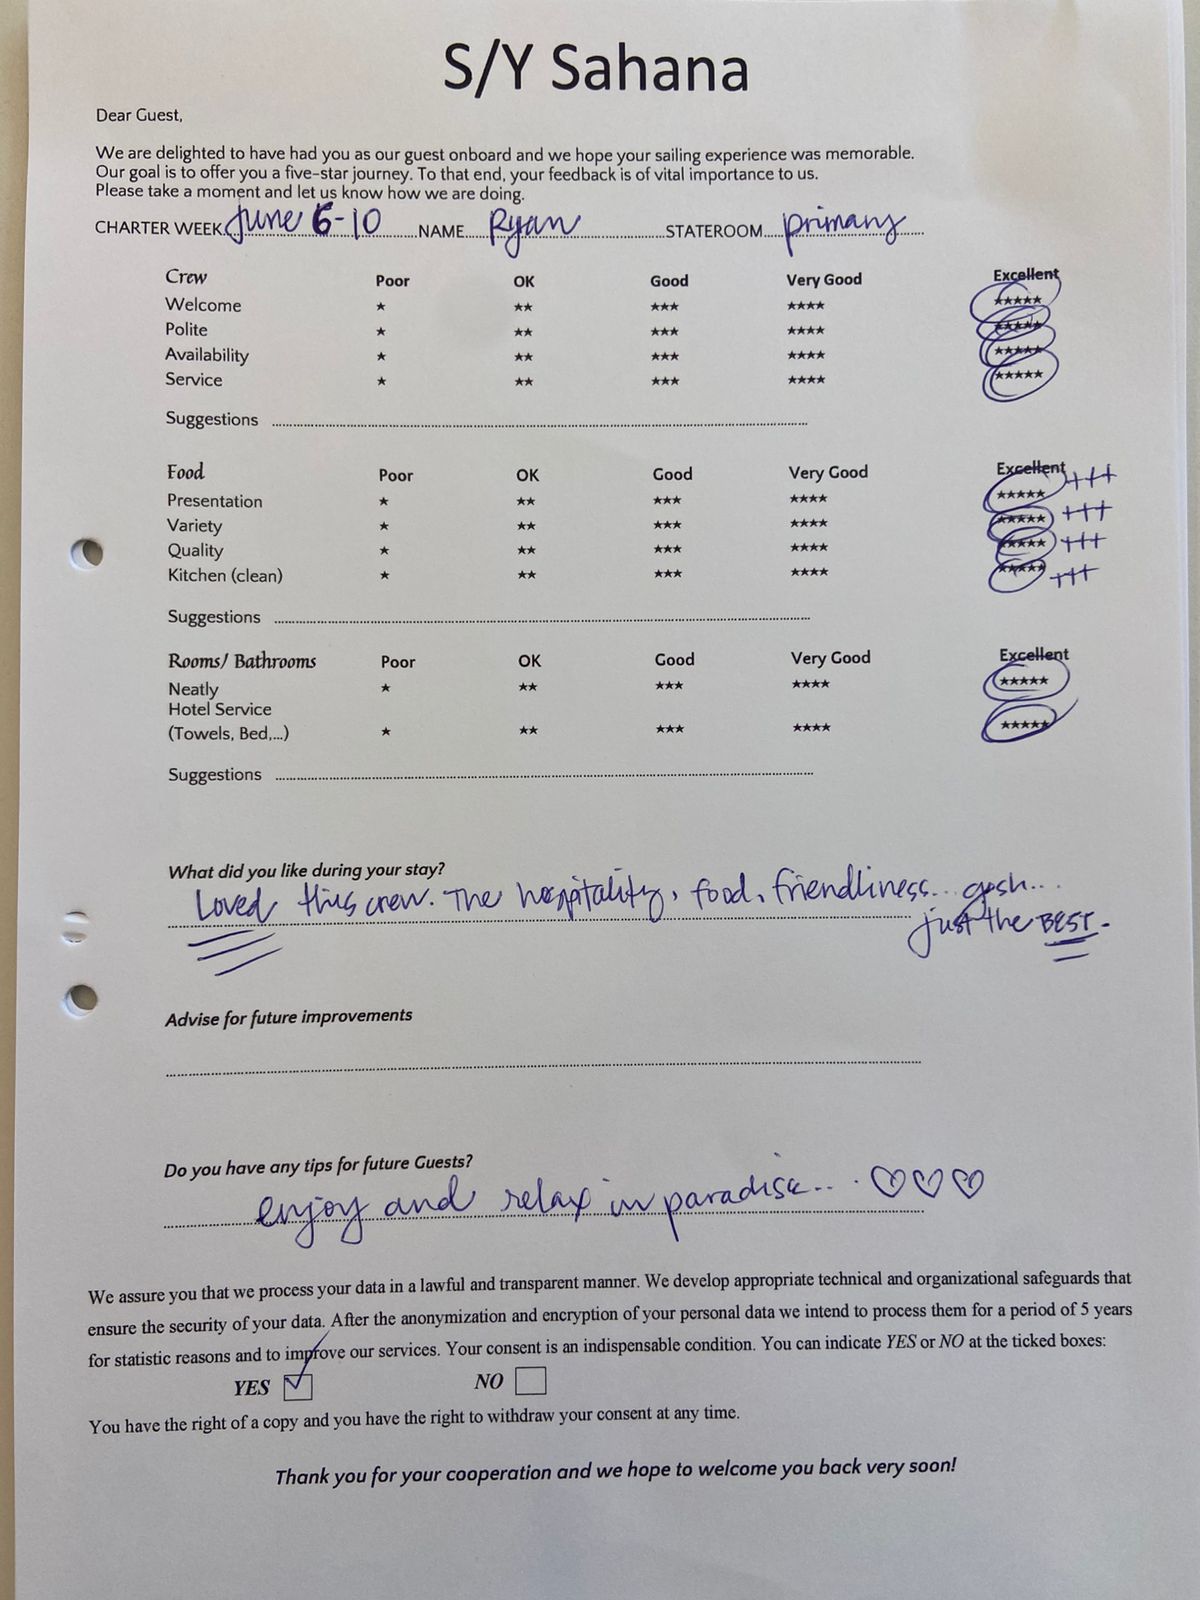 S/Y Sahana
Dear Guest,
We are delighted to have had you as our guest onboard and we hope your sailing experience was memorable.
Our goal is to offer you a five-star journey. To that end, your feedback is of vital importance to us.
Please take a moment and let us know how we are doing.
CHARTER WEEK June 6-10 NAME Ryan STATEROOM primary
Crew Poor OK Good Very Good Excellent
Welcome ★ ★★ ★★★ ★★★★ ★★★★★
Polite ★ ★★ ★★★ ★★★★ ★★★★★
Availability ★ ★★ ★★★ ★★★★ ★★★★★
Service ★ ★★ ★★★ ★★★★ ★★★★★
Suggestions
Food Poor OK Good Very Good Excellent
Presentation ★ ★★ ★★★ ★★★★ ★★★★★ +++
Variety ★ ★★ ★★★ ★★★★ ★★★★★ +++
Quality ★ ★★ ★★★ ★★★★ ★★★★★ +++
Kitchen (clean) ★ ★★ ★★★ ★★★★ ★★★★★ +++
Suggestions
Rooms/ Bathrooms Poor OK Good Very Good Excellent
Neatly ★ ★★ ★★★ ★★★★ ★★★★★
Hotel Service
(Towels, Bed,...) ★ ★★ ★★★ ★★★★ ★★★★★
Suggestions
What did you like during your stay?
Loved this crew. The hospitality, food, friendliness... gosh...
just the BEST.
Advise for future improvements
Do you have any tips for future Guests?
enjoy and relax in paradise... ♡♡♡
We assure you that we process your data in a lawful and transparent manner. We develop appropriate technical and organizational safeguards that
ensure the security of your data. After the anonymization and encryption of your personal data we intend to process them for a period of 5 years
for statistic reasons and to improve our services. Your consent is an indispensable condition. You can indicate YES or NO at the ticked boxes:
YES ☑ NO ☐
You have the right of a copy and you have the right to withdraw your consent at any time.
Thank you for your cooperation and we hope to welcome you back very soon!